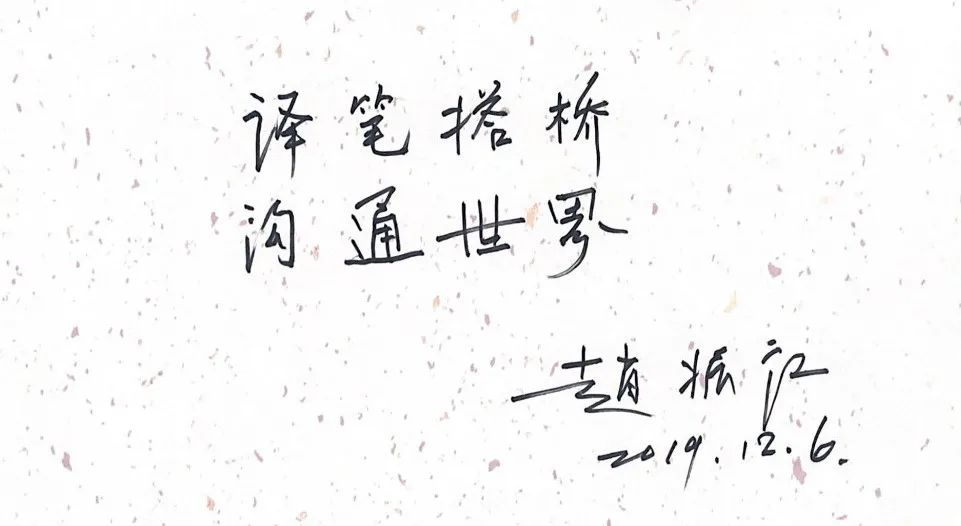 译笔搭桥
沟通世界
赵振江
2019.12.6.